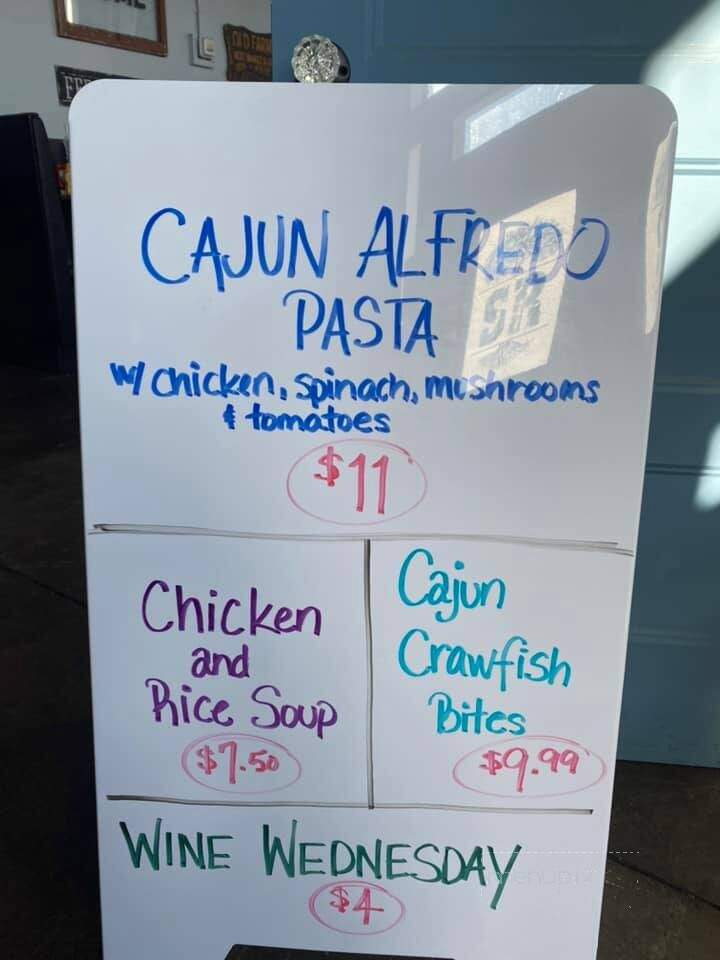 CAJUN ALFREDO
PASTA
w/ chicken, spinach, mushrooms
& tomatoes
$11
Chicken
and
Rice Soup
$7.50
Cajun
Crawfish
Bites
$9.99
WINE WEDNESDAY
$4
menupix